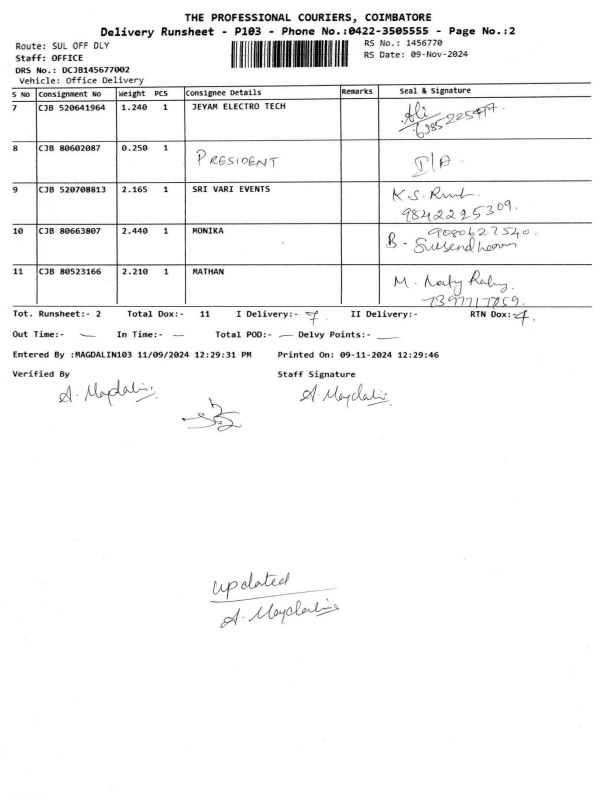 THE PROFESSIONAL COURIERS, COIMBATORE
Delivery Runsheet - P103 - Phone No.:0422-3505555 - Page No.:2
Route: SUL OFF DLY
RS No.: 1456770
Staff: OFFICE
RS Date: 09-Nov-2024
DRS No.: DCJB145677002
Vehicle: Office Delivery
S No Consignment No Weight PCS Consignee Details Remarks Seal & Signature
7 CJB 520641964 1.240 1 JEYAM ELECTRO TECH
8 CJB 80602087 0.250 1 PRESIDENT I/A
9 CJB 520708813 2.165 1 SRI VARI EVENTS K.S.
9842295309.
10 CJB 80663807 2.440 1 MONIKA 9080627540.
B.
11 CJB 80523166 2.210 1 MATHAN M.
7397717059.
Tot. Runsheet:- 2 Total Dox:- 11 I Delivery:- 7 II Delivery:- RTN Dox:- 4.
Out Time:- — In Time:- — Total POD:- — Delvy Points:- —
Entered By :MAGDALIN103 11/09/2024 12:29:31 PM Printed On: 09-11-2024 12:29:46
Verified By Staff Signature
A. Magdalin. A. Magdalin.
updated
A. Magdaline